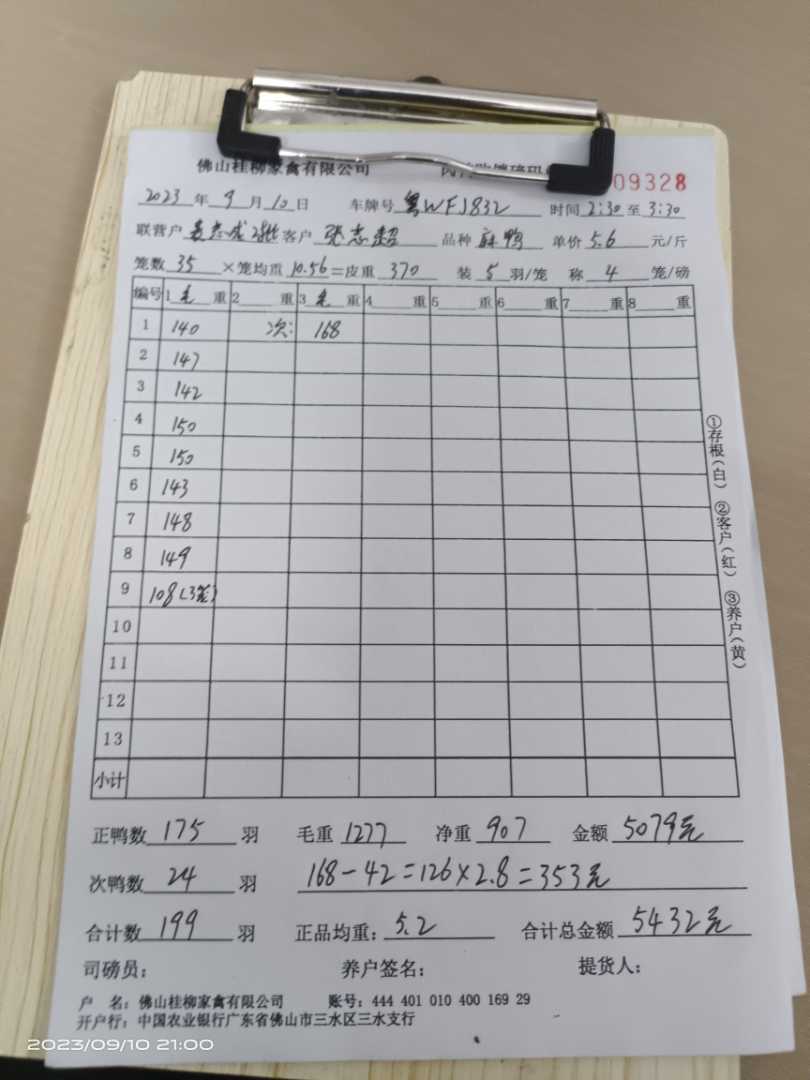 佛山桂柳家禽有限公司 09328
2023 年 9 月 10 日 车牌号 粤WFJ832 时间 2:30 至 3:30
联营户 袁志成 客户 张志超 品种 麻鸭 单价 5.6 元/斤
笼数 35 ×笼均重 10.56 =皮重 370 装 5 羽/笼 称 4 笼/磅
编号 1 毛 重 2 重 3 毛 重 4 重 5 重 6 重 7 重 8 重
1 140 次: 168
2 147
3 142
4 150
5 150
6 143
7 148
8 149
9 108(3笼)
10
11
12
13
小计
①存根(白) ②客户(红) ③养户(黄)
正鸭数 175 羽 毛重 1277 净重 907 金额 5079元
次鸭数 24 羽 168-42=126×2.8=353元
合计数 199 羽 正品均重: 5.2 合计总金额 5432元
司磅员: 养户签名: 提货人:
户 名: 佛山桂柳家禽有限公司 账号: 444 401 010 400 169 29
开户行: 中国农业银行广东省佛山市三水区三水支行
2023/09/10 21:00